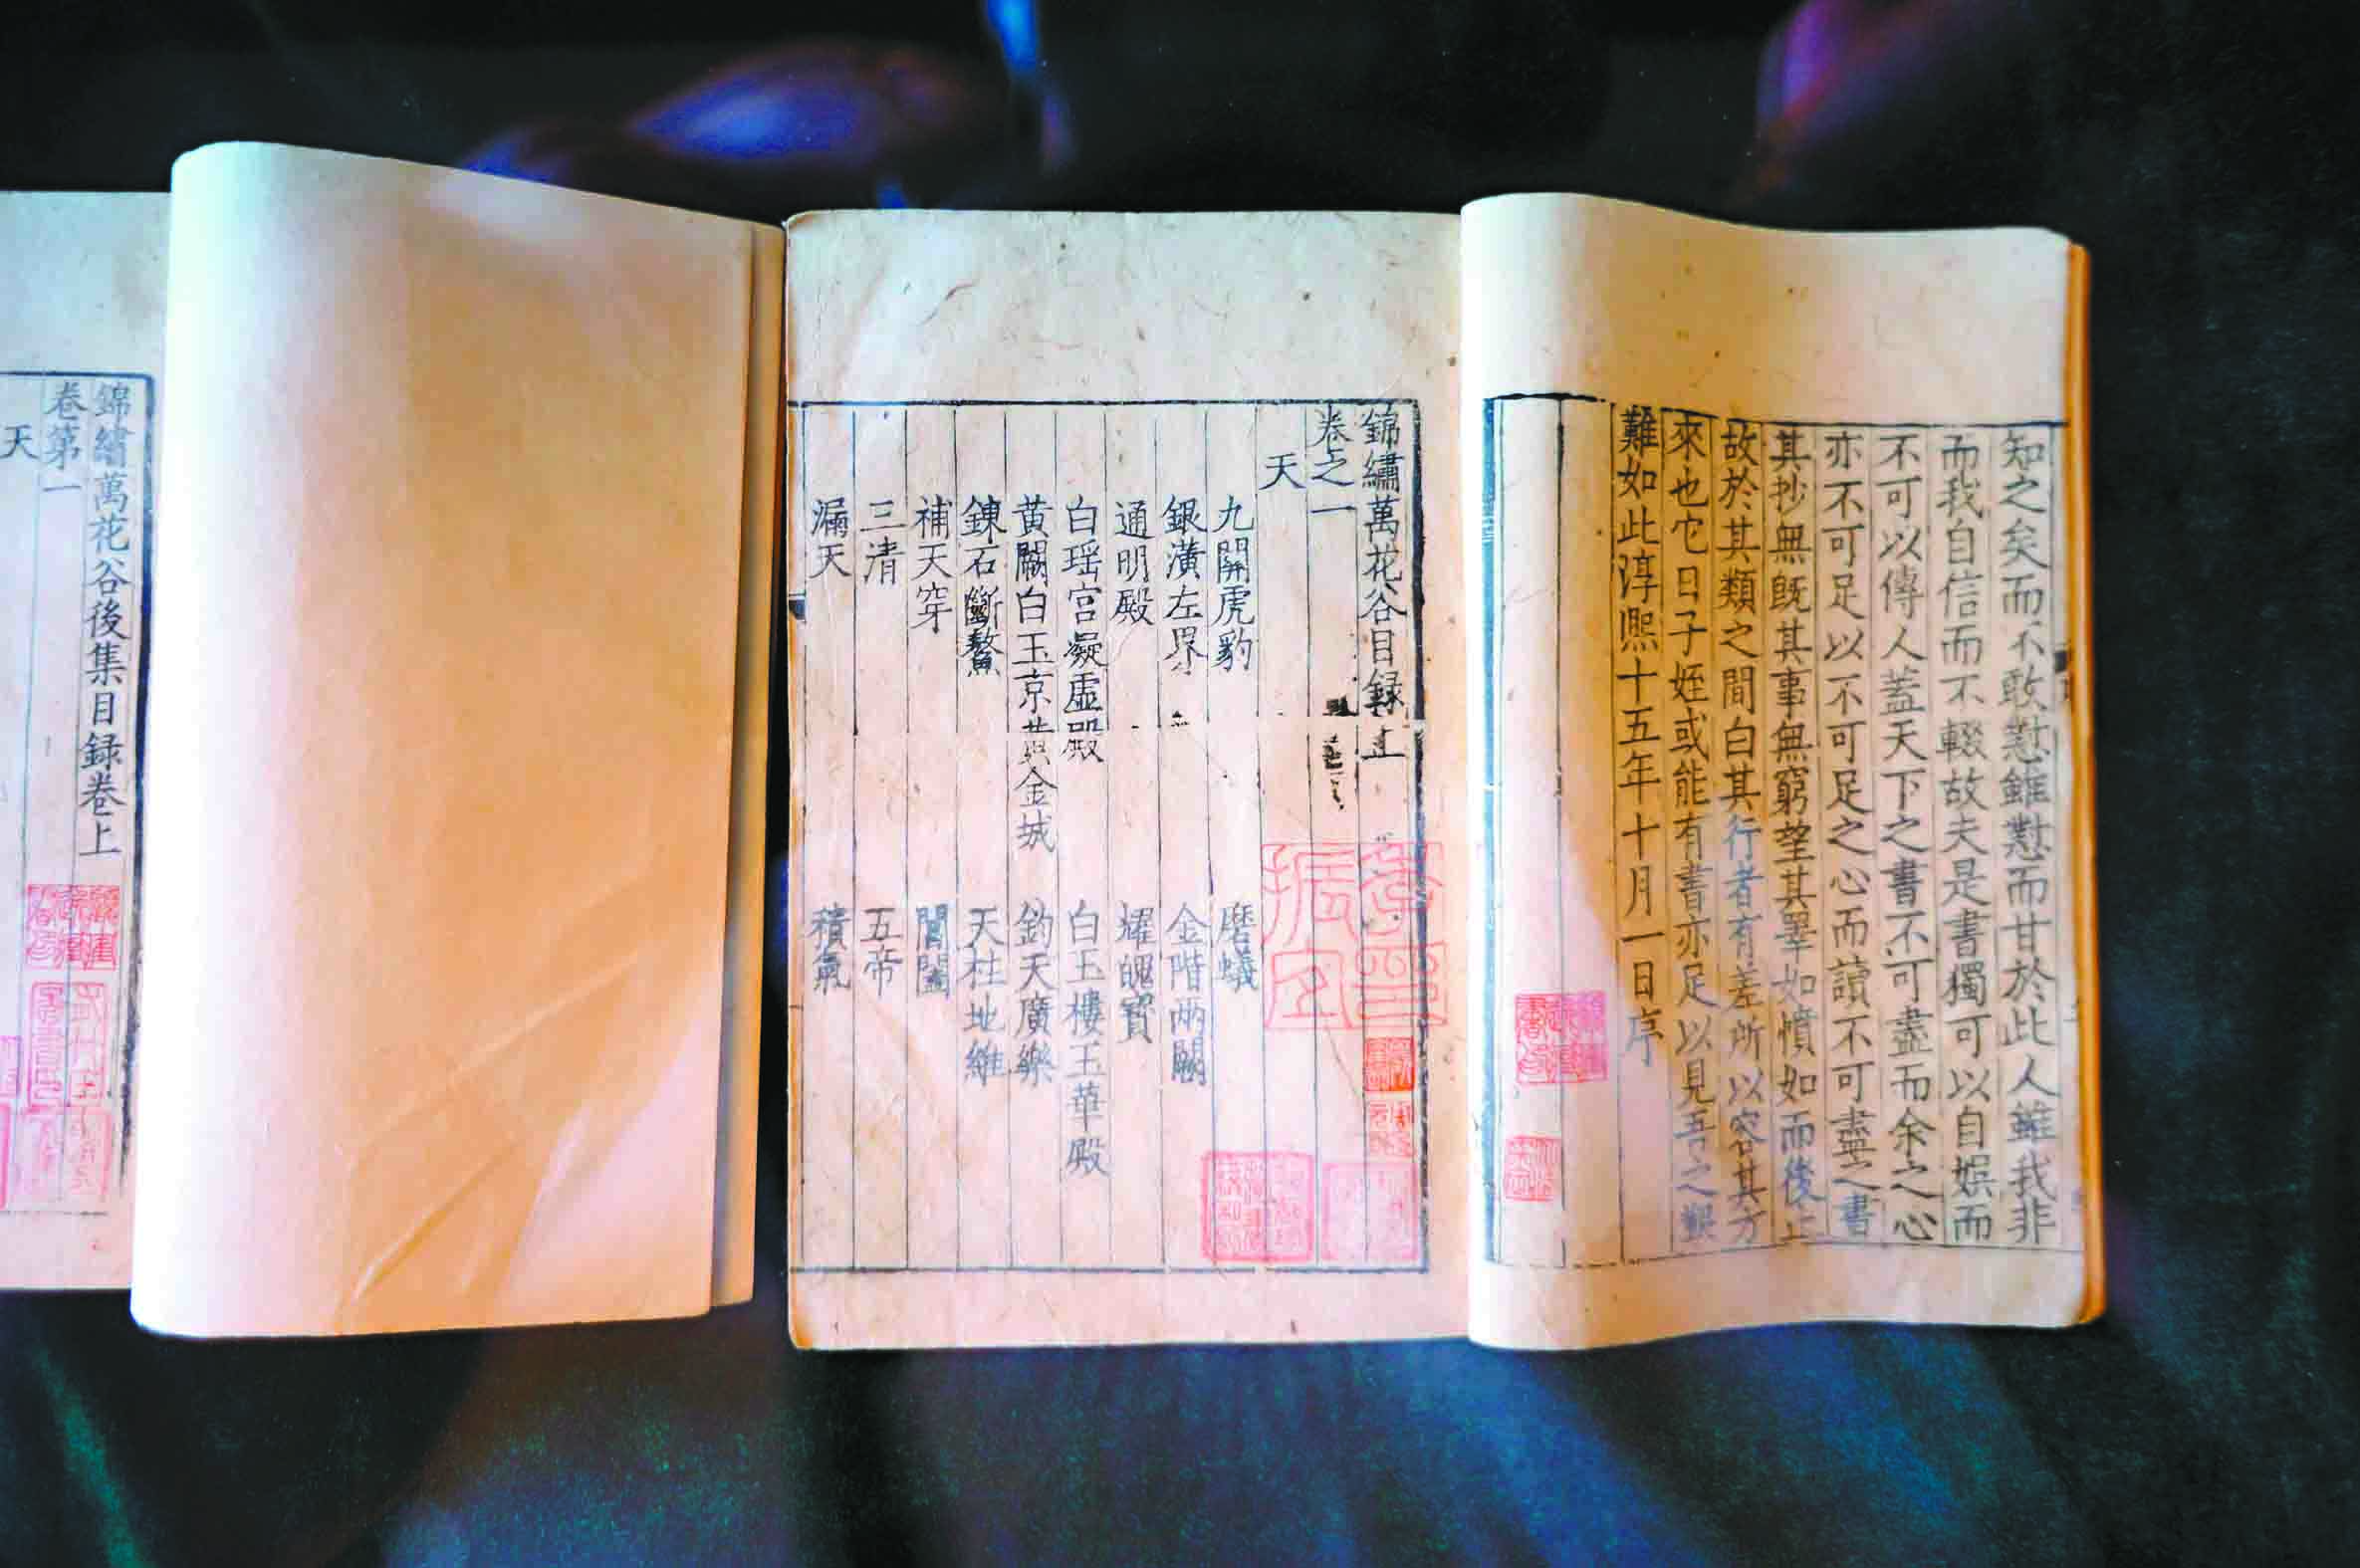 知之矣而不敢懟雖懟而甘於此人雖我非
而我自信而不輟故夫是書獨可以自娛而
不可以傳人蓋天下之書不可盡而余之心
亦不可足以不可足之心而讀不可盡之書
其抄無旣其事無窮望其睪如憤如而後止
故於其類之間白其行者有差所以容其方
來也它日子姪或能有書亦足以見吾之艱
難如此淳熈十五年十月一日序
錦繡萬花谷目録上
卷之一
天
九開虎豹 磨蟻
銀潢左界 金階兩闕
通明殿 耀魄寳
白瑶宫凝虚殿 白玉樓玉華殿
黄闕白玉京黄金城 鈞天廣樂
鍊石斷鰲 天柱地維
補天穿 閶闔
三清 五帝
漏天 積氣
錦繡萬花谷後集目録卷上
卷第一
天